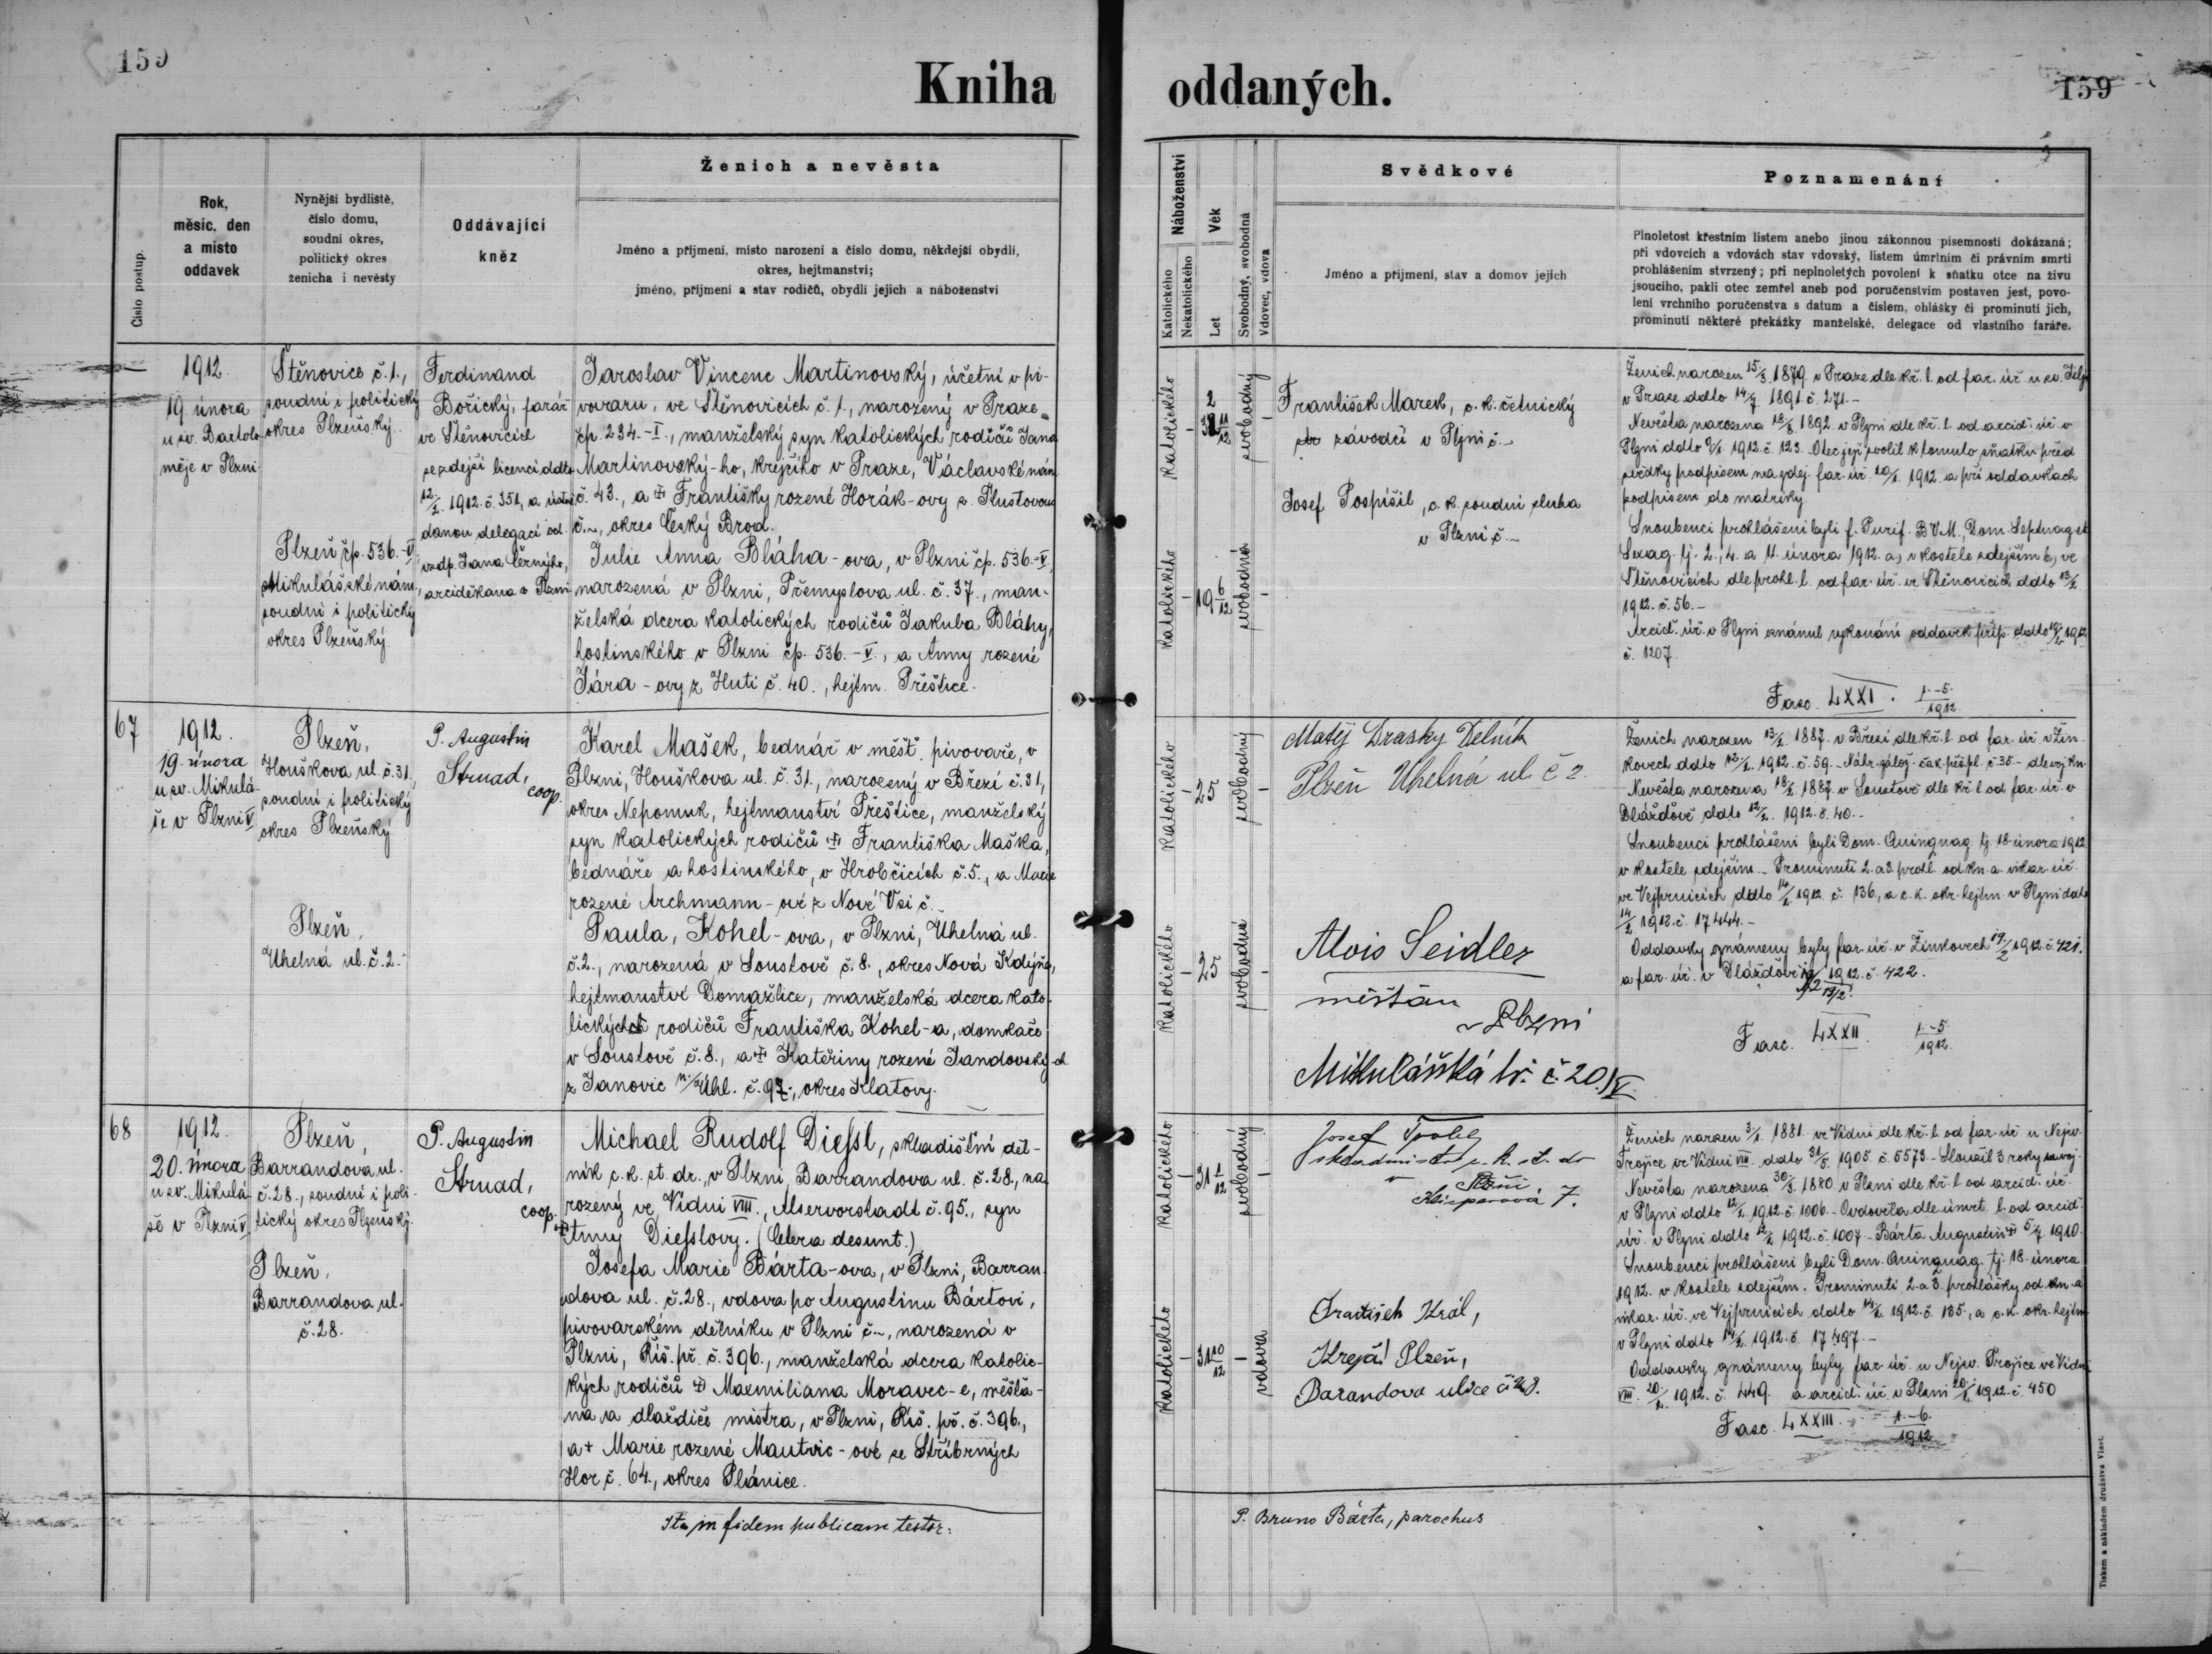 159
Kniha oddaných.
159
Číslo postup.
Rok,
měsíc, den
a místo
oddavek
Nynější bydliště,
číslo domu,
soudní okres,
politický okres
ženicha i nevěsty
Oddávající
kněz
Ženich a nevěsta
Jméno a příjmení, místo narození a číslo domu, někdejší obydlí,
okres, hejtmanství;
jméno, příjmení a stav rodičů, obydlí jejich a náboženství
Náboženství
Katolického
Nekatolického
Věk
Let
Svobodný, svobodná
Vdovec, vdova
Svědkové
Jméno a příjmení, stav a domov jejich
Poznamenání
Plnoletost křestním listem anebo jinou zákonnou písemností dokázaná;
při vdovcích a vdovách stav vdovský, listem úmrtním či právním smrti
prohlášením stvrzený; při neplnoletých povolení k sňatku otce na živu
jsoucího, pakli otec zemřel aneb pod poručenstvím postaven jest, povo-
lení vrchního poručenstva s datum a číslem, ohlášky či prominutí jich,
prominutí některé překážky manželské, delegace od vlastního faráře.
1912.
19. února
u sv. Bartolo-
měje v Plzni
Štěnovice č. 1.,
soudní i politický
okres Plzeňský.
Plzeň čp. 536.-V
Mikulášské nám.,
soudní i politický
okres Plzeňský.
Ferdinand
Bořický, farář
ve Štěnovicích
se zdejší licencí ddto
12/2 1912. č. 351, a ústně
danou delegací od
vzdp. Jana Černýho,
arciděkana v Plzni
Jaroslav Vincenc Martinovský, účetní v pi-
vovaru, ve Štěnovicích č. 1., narozený v Praze
čp. 234.-I., manželský syn katolických rodičů Jana
Martinovský-ho, krejčího v Praze, Václavské nám.
č. 43., a + Františky rozené Horák-ovy z Tlustovous
č. ~, okres Český Brod.
Julie Anna Bláha-ova, v Plzni čp. 536-V,
narozená v Plzni, Přemyslova ul. č. 37., man-
želská dcera katolických rodičů Jakuba Bláhy,
hostinského v Plzni čp. 536.-V., a Anny rozené
Jára-ovy z Hutí č. 40., hejtm. Přeštice.
Katolického
svobodný
Katolického
19 6/12
svobodná
František Marek, c. k. četnický
závodčí v Plzni č. -
Josef Pospíšil, c. k. soudní sluha
v Plzni č. -
Ženich narozen 15/3. 1879. v Praze dle kř. l. od far. úř. u sv. Jiljí
v Praze ddto 14/7 1891 č. 271.-
Nevěsta narozena 18/8. 1892 v Plzni dle kř. l. od arcid. úř. v
Plzni ddto 1912. č. 123. Otec její svolil k tomuto sňatku před
svědky podpisem na zdej. far. úř. 1912 a při oddavkách
podpisem do matriky.
Snoubenci prohlášeni byli f. Purif. B.V.M., Dom. Septuag. et
Sexag. tj. 2., 4. a 11 února 1912. a, v kostele zdejším b, ve
Štěnovicích dle prohl. l. od far. úř. ve Štěnovicích ddto
1912. č. 56.-
Arcid. úř. v Plzni oznánul vykonání oddavek přip. ddto 19/2 1912
č. 1207.
Fasc. LXXI. 1.-5. 1912.
67
1912.
19. února
u sv. Mikulá-
še v Plzni V
Plzeň,
Houškova ul. č. 31.
soudní i politický
okres Plzeňský
Plzeň,
Uhelná ul. č. 2.-
P. Augustin
Strnad,
coop.
Karel Mašek, bednář v měšť. pivovaře, v
Plzni, Houškova ul. č. 31., narozený v Březí č. 31,
okres Nepomuk, hejtmanství Přeštice, manželský
syn katolických rodičů + Františka Maška,
bednáře a hostinského, v Hrobčicích č. 5., a Marie
rozené Archmann-ové z Nové Vsi č.-
Paula, Kohel-ova, v Plzni, Uhelná ul.
č. 2., narozená v Soustově č. 8., okres Nová Kdýně,
hejtmanství Domažlice, manželská dcera kato-
lických rodičů Františka Kohel-a, domkaře
v Soustově č. 8., a + Kateřiny rozené Jandovský-ch
z Janovic n/Úhl. č. 97., okres Klatovy.
Katolického
25
svobodný
Katolického
25
svobodná
Matěj Drasky Dělník
Plzeň Uhelná ul č 2.
Alois Seidler
měšťan
v Plzni
Mikulášská tř. č. 20. V
Ženich narozen 1887. v Březí dle kř. l. od far. úř. v Žin-
kovech ddto 12/2. 1912. č. 59.- Náhr. zálož. čs. k. pěš. pl. č. 35- dle voj. kn.
Nevěsta narozena 18/1. 1887. v Soustově dle kř. l. od far. úř. v
Dlážďově ddto 12/2. 1912. č. 40.-
Snoubenci prohlášeni byli Dom. Quinquag. tj. 18. února 1912.
v kostele zdejším. Prominutí 2. a 3. prohl. od kn. a. vikar. úř.
ve Vejprnicích ddto 14/2 1912. č. 136., a c. k. okr. hejtm. v Plzni ddto
14/2 1912. č. 17444.-
Oddavky oznámeny byly far. úř. v Žinkovech 19/2 1912. č. 421.
a far. úř. v Dlážďově 19/2. 1912. č. 422.
Fasc. LXXII. 1.-5. 1912.
68
1912.
20. února
u sv. Mikulá-
še v Plzni V
Plzeň,
Barrandova ul.
č. 28., soudní i poli-
tický okres Plzeňský.
Plzeň,
Barrandova ul.
č. 28.
P. Augustin
Strnad,
coop.
Michael Rudolf Diessl, skladištní děl-
ník c. k. st. dr., v Plzni, Barrandova ul. č. 28., na-
rozený ve Vídni VIII., Alservorstadt č. 95., syn
+ Anny Diesslovy. (Cetera desunt.)
Josefa Marie Bárta-ova, v Plzni, Barran-
dova ul. č. 28., vdova po Augustinu Bártovi,
pivovarském dělníku v Plzni č. ~, narozená v
Plzni, Říš. př. č. 396., manželská dcera katolic-
kých rodičů + Maxmiliana Moravec-e, měšťa-
na a dlaždič. mistra, v Plzni, Říš. př. č. 396.,
a + Marie rozené Mautvic-ové ze Stříbrných
Hor č. 64., okres Plánice.
Katolického
31 1/12
svobodný
Katolického
31 10/12
vdova
Josef
c. k. st. dr.
v Plzni
Klicperova 7.
František Král,
Krejčí Plzeň,
Barandova ulice č 28.
Ženich narozen 3/1. 1881. ve Vídni dle kř. l. od far. úř. u Nejsv.
Trojice ve Vídni VIII. ddto 31/5. 1905. č. 5573.- Sloužil 3 roky na voj.-
Nevěsta narozena 30/3. 1880 v Plzni dle kř. l. od arcid. úř.
v Plzni ddto 12/2. 1912. č. 1006.- Ovdověla dle úmrt. l. od arcid.
úř. v Plzni ddto 12/2. 1912. č. 1007.- Bárta Augustin + 5/7. 1910.
Snoubenci prohlášeni byli Dom. Quinquag. tj. 18. února
1912. v kostele zdejším. Prominutí 2. a 3. prohlášky od kn. a.
vikar. úř. ve Vejprnicích ddto 14/2. 1912. č. 135., a c. k. okr. hejtm.
v Plzni ddto 14/2. 1912. č. 17497.-
Oddavky oznámeny byly far. úř. u Nejsv. Trojice ve Vídni
VIII. 20./2. 1912. č. 449. a arcid. úř. v Plzni 20./2. 1912. č. 450
Fasc. LXXIII. 1.-6. 1912
Ita in fidem publicam testor:
P. Bruno Bárta, parochus
Tiskem a nákladem družstva Vlast.